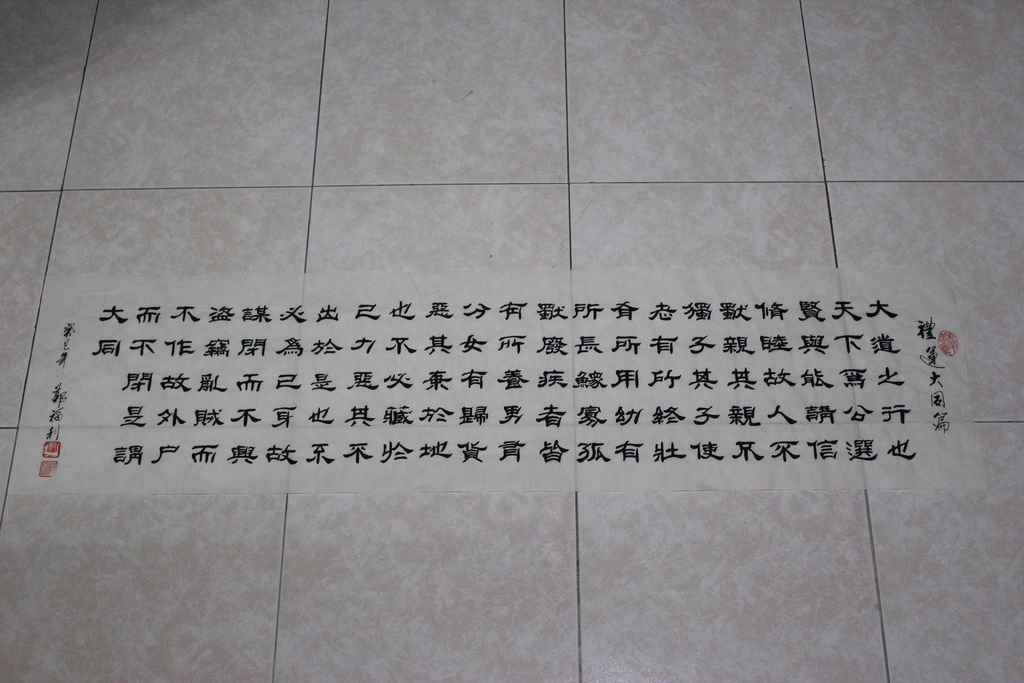 禮運大同篇
大道之行也
天下為公選
賢與能講信
脩睦故人不
獨親其親不
獨子其子使
老有所終壯
有所用幼有
所長鰥寡孤
獨廢疾者皆
有所養男有
分女有歸貨
惡其棄於地
也不必藏於
己力惡其不
出於是也不
必為己身故
謀閉而不興
盜竊亂賊而
不作故外戶
而不閉是謂
大同
癸巳年 鄭福利